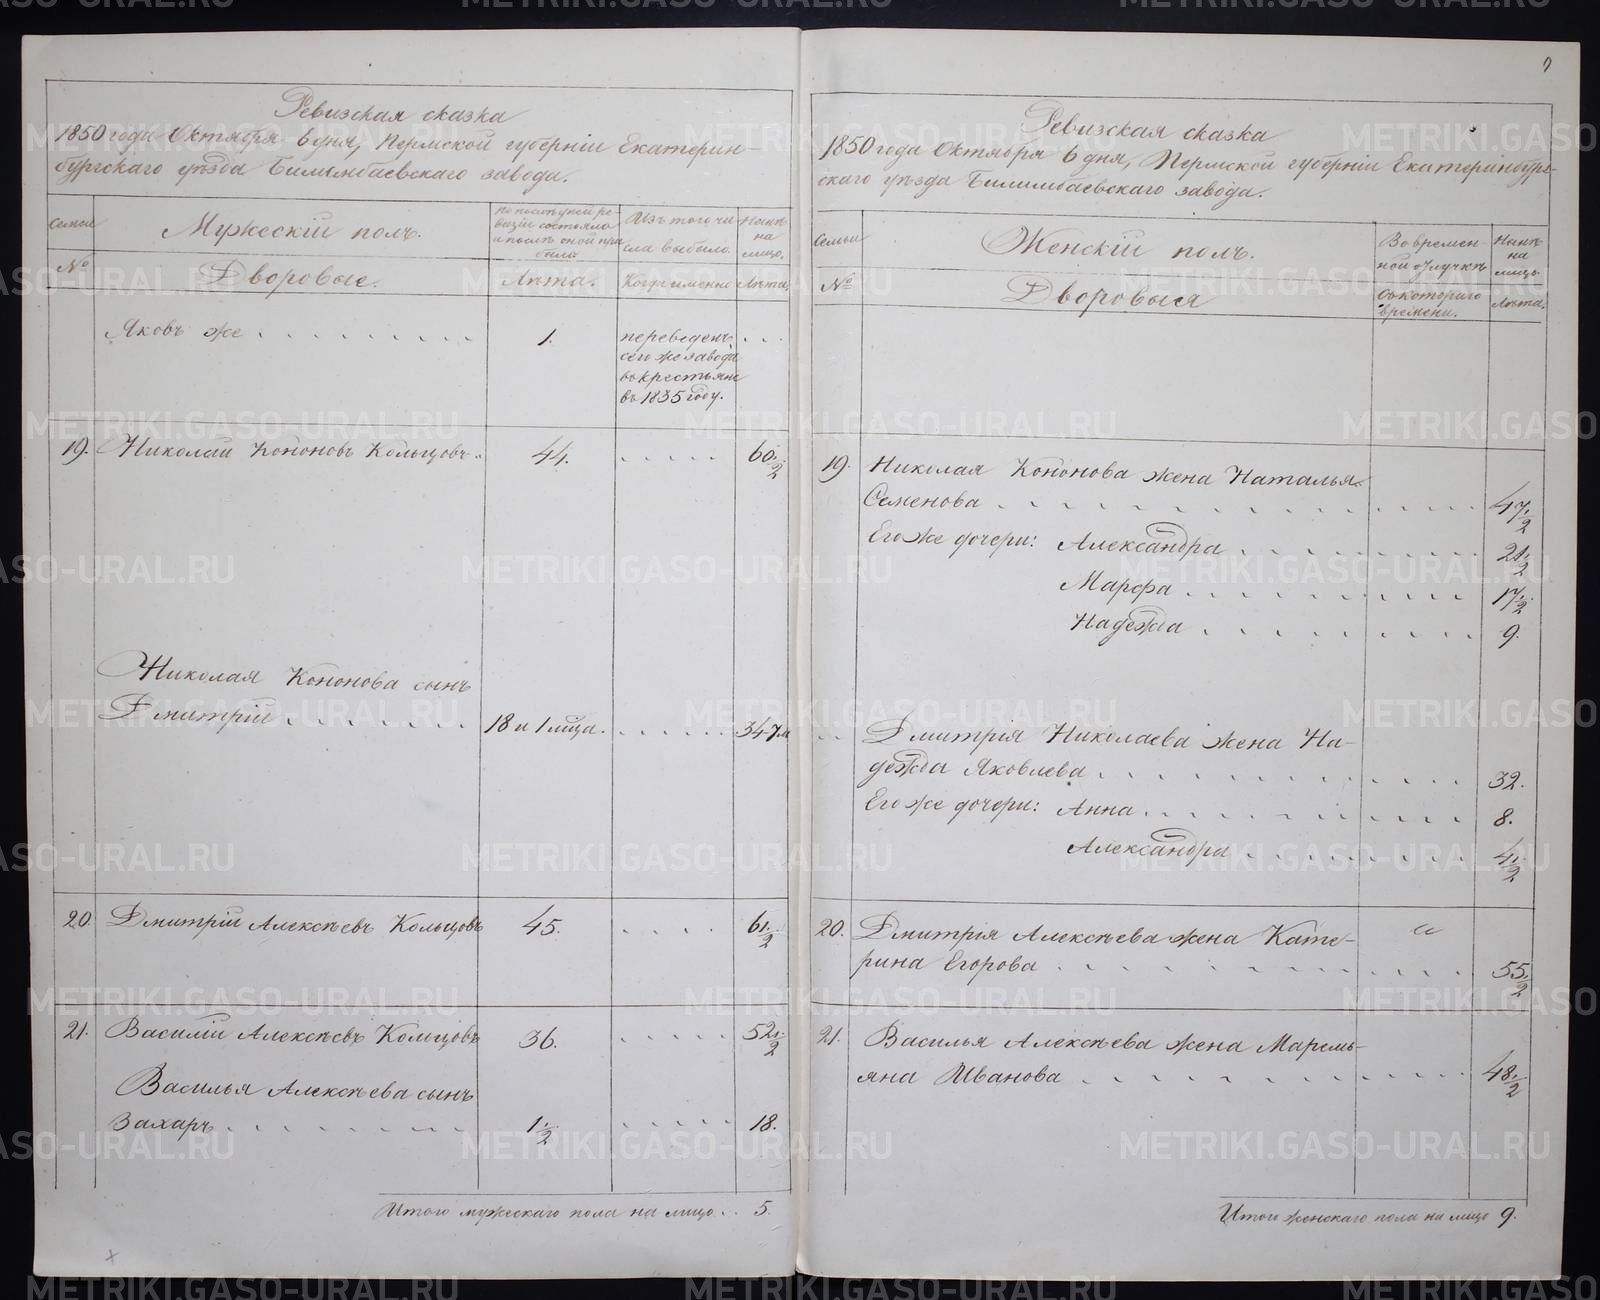 Ревизская сказка
1850 года Октября 6 дня, Пермской губерніи Екатерин-
бургскаго уѣзда Билимбаевскаго завода.
Семьи
Мужескій полъ.
По послѣдней ре-
визіи состояло
и послѣ оной при
было
Изъ того чи
сла выбыло.
Нынѣ
на
лицо.
№
Дворовые.
Лѣта.
Когда именно
Лѣта.
Яковъ же
1.
переведенъ
сего же завода
въ крестьяне
въ 1835 году.
19. Николай Кононовъ Кольцовъ 44. 60 1/2
Николая Кононова сынъ
Дмитрій 18 и 1 мѣца. 34 7м
20. Дмитрій Алексѣевъ Кольцовъ 45. 61 1/2
21. Василій Алексѣевъ Кольцовъ 36. 52 1/2
Василья Алексѣева сынъ
Захаръ 1 1/2 18.
Итого мужескаго пола на лицо 5.
Ревизская сказка
1850 года Октября 6 дня, Пермской губерніи Екатеринбург-
скаго уѣзда Билимбаевскаго завода.
Семьи
Женскій полъ.
Во времен-
ной отлучкѣ
Нынѣ
на
лицо
№
Дворовыя
Съ котораго
времени.
Лѣта.
19. Николая Кононова жена Наталья
Семенова 47 1/2
Его же дочери: Александра 21 1/2
Марфа 17 1/2
Надежда 9.
Дмитрія Николаева жена На-
дежда Яковлева 32.
Его же дочери: Анна 8.
Александра 4 1/2
20. Дмитрія Алексѣева жена Кате- "
рина Егорова 55 1/2
21. Василья Алексѣева жена Маремь-
яна Иванова 48 1/2
Итого женскаго пола на лицо 9.
METRIKI.GASO-URAL.RU